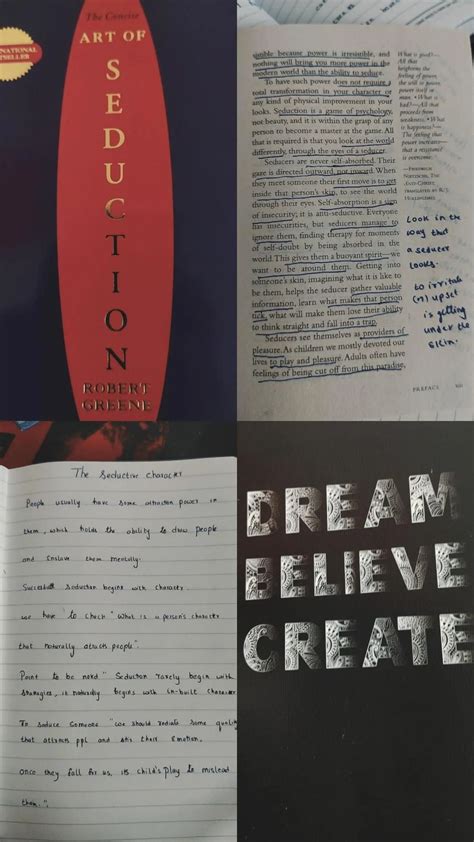 The Concise
ART OF
SEDUCTION
ROBERT
GREENE
NATIONAL
TSELLER
simible because power is irresistible, and
nothing will bring you more power in the
modern world than the ability to seduce.
To have such power does not require a
total transformation in your character or
any kind of physical improvement in your
looks. Seduction is a game of psychology,
not beauty, and it is within the grasp of any
person to become a master at the game. All
that is required is that you look at the world
differently, through the eyes of a seducer.
Seducers are never self-absorbed. Their
gaze is directed outward, not inward. When
they meet someone their first move is to get
inside that person's skin, to see the world
through their eyes. Self-absorption is a sign
of insecurity; it is anti-seductive. Everyone
has insecurities, but seducers manage to
ignore them, finding therapy for moments
of self-doubt by being absorbed in the
world. This gives them a buoyant spirit—we
want to be around them. Getting into
someone's skin, imagining what it is like to
be them, helps the seducer gather valuable
information, learn what makes that person
tick, what will make them lose their ability
to think straight and fall into a trap.
Seducers see themselves as providers of
pleasure. As children we mostly devoted our
lives to play and pleasure. Adults often have
feelings of being cut off from this paradise,
What is good?—
All that
heightens the
feeling of power,
the will to power,
power itself in
man. • What is
bad?—All that
proceeds from
weakness. • What
is happiness?—
The feeling that
power increases—
that a resistance
is overcome.
—FRIEDRICH
NIETZSCHE, THE
ANTI-CHRIST,
TRANSLATED BY R.J.
HOLLINGDALE
Look in the
way that
a seducer
looks.
to irritate
(n) upset
is getting
under the
skin.
PREFACE
The Seductive character
People usually have some attraction power in
them, which holds the ability to draw people
and Enslave them mentally.
Successfull Seduction begins with character.
we have to check "What is a person's character
that naturally attracts people".
Point to be noted " Seduction rarely begin with
strategies, it naturally begins with in-built character
To seduce someone "we should radiate some quality
that attracts ppl and stir their Emotion.
once they fall for us, its child's play to mislead
them.".
DREAM
BELIEVE
CREATE